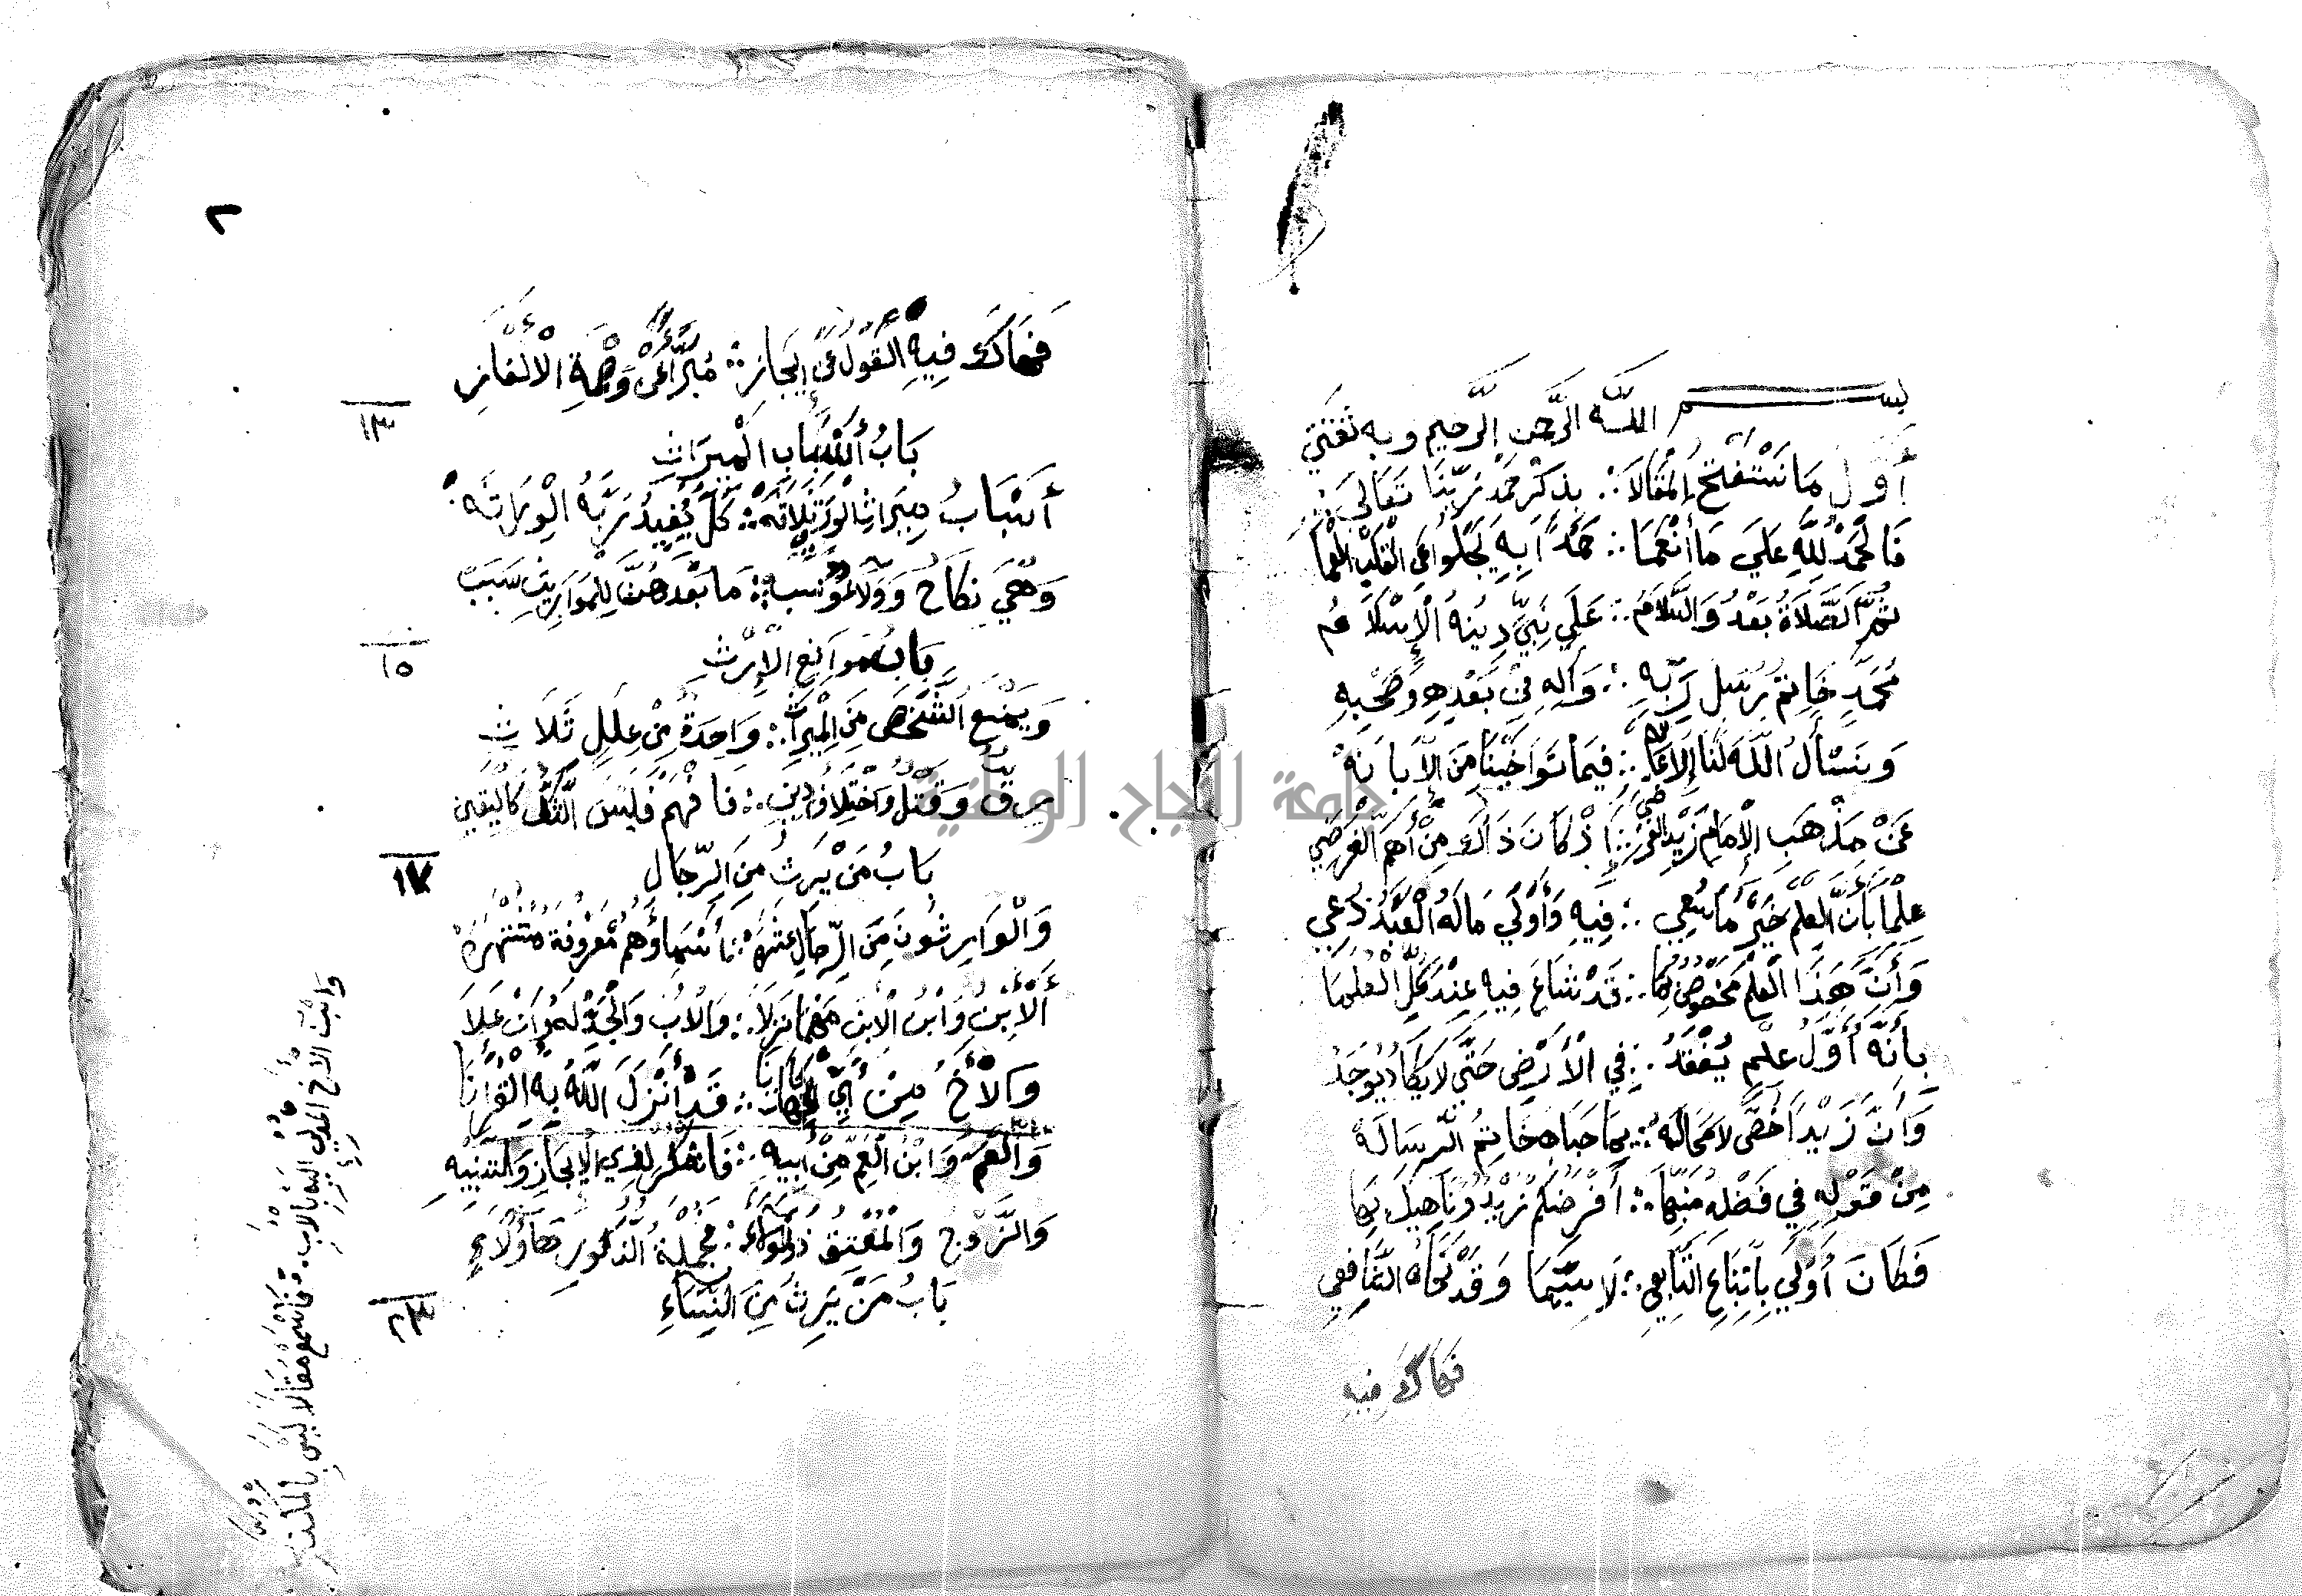 بسم الله الرحمن الرحيم وبه ثقتي
أَوَّلُ مَا نَسْتَفْتِحُ الْمَقَالَا ∴ بِذِكْرِ حَمْدِ رَبِّنَا تَعَالَى
فَالْحَمْدُ لِلَّهِ عَلَى مَا أَنْعَمَا ∴ حَمْدًا بِهِ يَجْلُوا عَنِ الْقَلْبِ الْعَمَا
ثُمَّ الصَّلَاةُ بَعْدُ وَالسَّلَامُ ∴ عَلَى نَبِيٍّ دِينُهُ الْإِسْلَامُ
مُحَمَّدٍ خَاتِمِ رُسْلِ رَبِّهِ ∴ وَآلِهِ مِنْ بَعْدِهِ وَصَحْبِهِ
وَنَسْأَلُ اللَّهَ لَنَا الْإِعَانَهْ ∴ فِيمَا تَوَاخَيْنَا مِنَ الْإِبَانَهْ
عَنْ مَذْهَبِ الْإِمَامِ زَيْدِ الْفَرَضِي ∴ إِذْ كَانَ ذَاكَ مِنْ أَهَمِّ الْغَرَضِ
عِلْمًا بِأَنَّ الْعِلْمَ خَيْرُ مَا سُعِي ∴ فِيهِ وَأَوْلَى مَا لَهُ الْعَبْدُ دُعِي
وَأَنَّ هَذَا الْعِلْمَ مَخْصُوصٌ بِمَا ∴ قَدْ شَاعَ فِيهِ عِنْدَ كُلِّ الْعُلَمَا
بِأَنَّهُ أَوَّلُ عِلْمٍ يُفْقَدُ ∴ فِي الْأَرْضِ حَتَّى لَا يَكَادُ يُوجَدُ
وَأَنَّ زَيْدًا خُصَّ لَا مَحَالَهْ ∴ بِمَا حَبَاهُ خَاتِمُ الرِّسَالَهْ
مِنْ قَوْلِهِ فِي فَضْلِهِ مُنَبِّهَا ∴ أَفْرَضُكُمْ زَيْدٌ وَنَاهِيكَ بِهَا
فَكَانَ أَوْلَى بِاتِّبَاعِ التَّابِعِي ∴ لَا سِيَّمَا وَقَدْ نَحَاهُ الشَّافِعِي
فهاك فيه
٢
فَهَاكَ فِيهِ الْقَوْلَ عَنْ إِيجَازِ ∴ مُبَرَّأً عَنْ وَصْمَةِ الْأَلْغَازِ
١٣
بَابُ أَسْبَابِ الْمِيرَاثِ
أَسْبَابُ مِيرَاثِ الْوَرَى ثَلَاثَهْ ∴ كُلٌّ يُفِيدُ رَبَّهُ الْوِرَاثَهْ
وَهْيَ نِكَاحٌ وَوَلَاءٌ وَنَسَبْ ∴ مَا بَعْدَهُنَّ لِلْمَوَارِيثِ سَبَبْ
١٥
بَابُ مَوَانِعِ الْإِرْثِ
وَيَمْنَعُ الشَّخْصَ مِنَ الْمِيرَاثِ ∴ وَاحِدَةٌ مِنْ عِلَلٍ ثَلَاثِ
رِقٌّ وَقَتْلٌ وَاخْتِلَافُ دِينِ ∴ فَافْهَمْ فَلَيْسَ الشَّكُّ كَالْيَقِينِ
١٧
بَابُ مَنْ يَرِثُ مِنَ الرِّجَالِ
وَالْوَارِثُونَ مِنَ الرِّجَالِ عَشَرَهْ ∴ أَسْمَاؤُهُمْ مَعْرُوفَةٌ مُشْتَهِرَهْ
أَلْاِبْنُ وَابْنُ الْاِبْنِ مَهْمَا نَزَلَا ∴ وَالْأَبُ وَالْجَدُّ لَهُ وَإِنْ عَلَا
وَالْأَخُ مِنْ أَيِّ الْجِهَاتِ كَانَا ∴ قَدْ أَنْزَلَ اللَّهُ بِهِ الْقُرْآنَا
وَالْعَمُّ وَابْنُ الْعَمِّ مِنْ أَبِيهِ ∴ فَاشْكُرْ لِذِي الْإِيجَازِ وَالتَّنْبِيهِ
وَالزَّوْجُ وَالْمُعْتِقُ ذُو الْوَلَاءِ ∴ فَجُمْلَةُ الذُّكُورِ هَؤُلَاءِ
٢٣
بَابُ مَنْ يَرِثُ مِنَ النِّسَاءِ
وَابْنُ الْأَخِ الْمُدْلِي إِلَيْهِ بِالْأَبِ ∴ فَاسْمَعْ مَقَالًا لَيْسَ بِالْمُكَذَّبِ
جامعة النجاح الوطنية